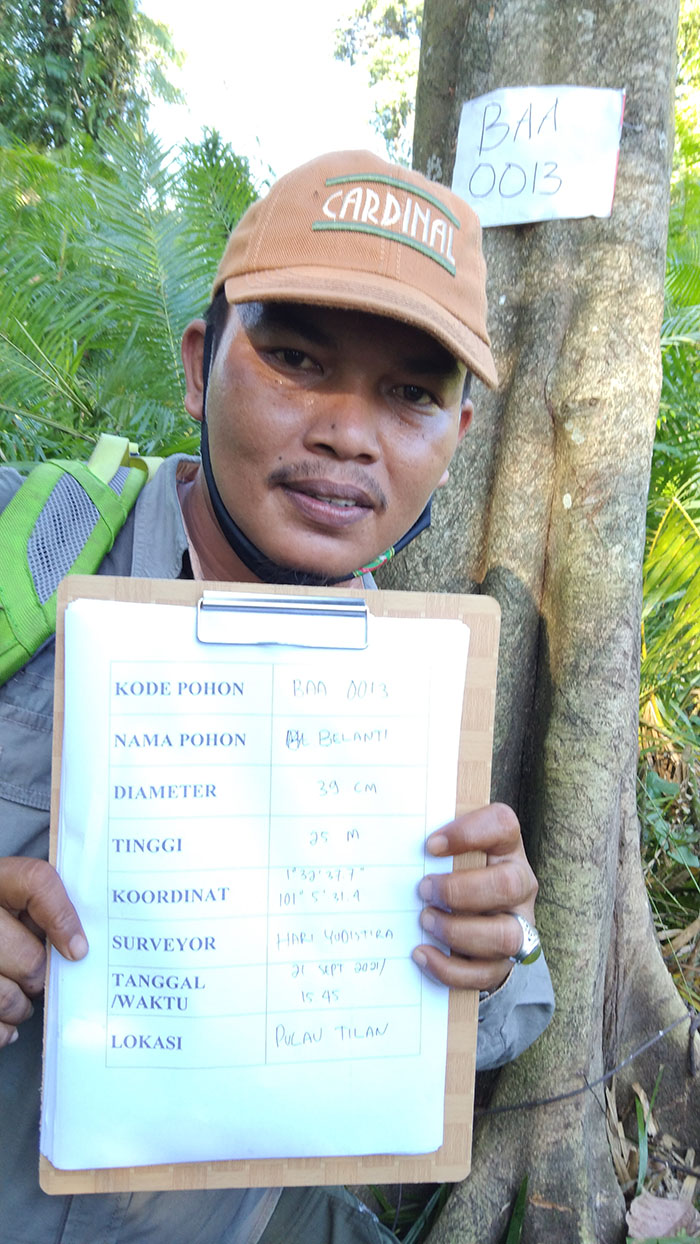 BAA
0013
CARDINAL
KODE POHON BAA 0013
NAMA POHON BELANTI
DIAMETER 39 CM
TINGGI 25 M
KOORDINAT 1° 32' 37.7"
101° 5' 31.4
SURVEYOR HARI YUDISTIRA
TANGGAL 21 SEPT 2021/
/WAKTU 15.45
LOKASI PULAU TILAN